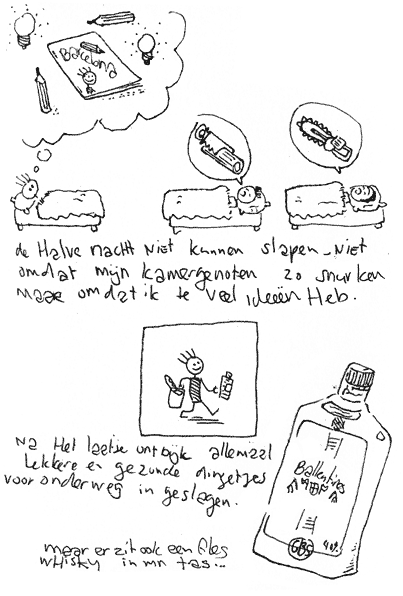 Barcelona
de Halve nacht niet kunnen slapen. Niet
omdat mijn kamergenoten zo snurken
maar omdat ik te veel ideeën Heb.
Na Het laatse ontbijt allemaal
lekkere en gezonde dingetjes
voor onderweg in geslagen.
Ballentines
40%
maar er zit ook een fles
whisky in mn tas...